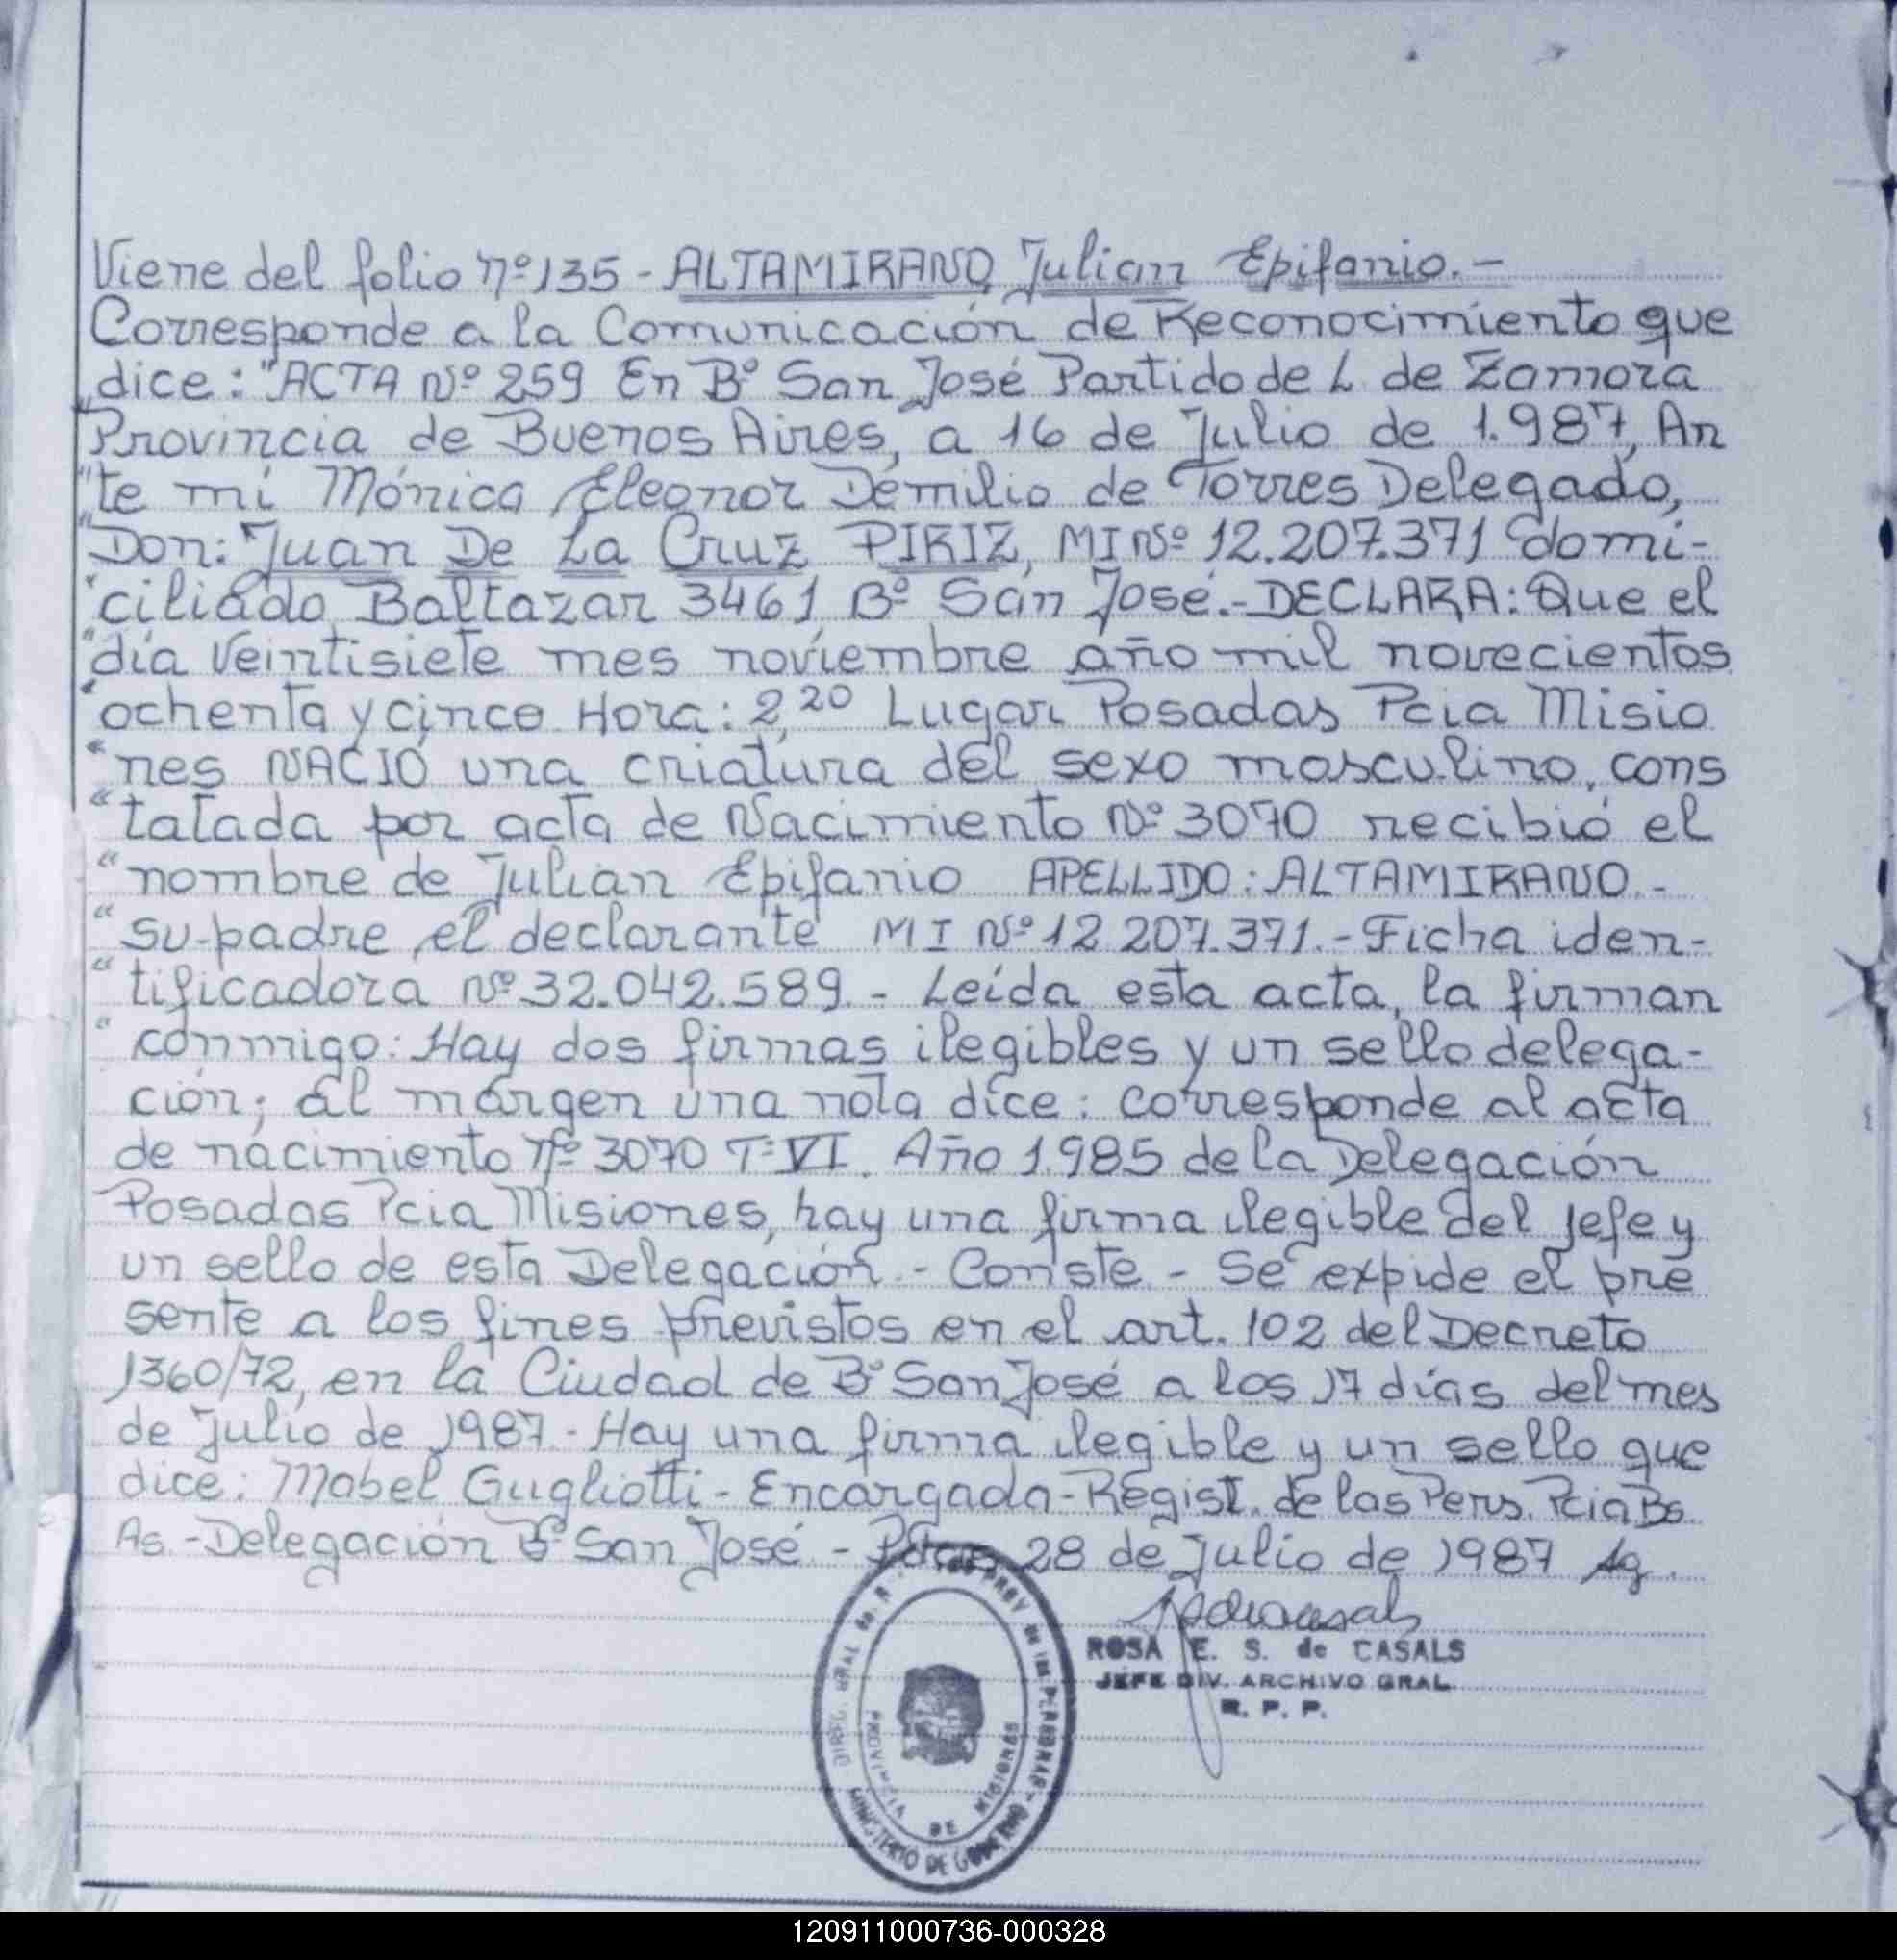 Viene del folio nº 135 - ALTAMIRANO Julian Epifanio. -
Corresponde a la Comunicación de Reconocimiento que
"dice: "ACTA Nº 259 En Bº San José Partido de L. de Zamora
Provincia de Buenos Aires, a 16 de Julio de 1.987, An
"te mí Mónica Eleonor Demilio de Torres Delegado,
"Don: Juan De La Cruz PIRIZ, MI Nº 12.207.371 domi-
"ciliado Baltazar 3461 Bº San José.- DECLARA: Que el
"día veintisiete mes noviembre año mil novecientos
"ochenta y cinco Hora: 2,20 Lugar Posadas Pcia Misio
"nes NACIÓ una criatura del sexo masculino, cons
"tatada por acta de Nacimiento Nº 3070 recibió el
"nombre de Julian Epifanio APELLIDO: ALTAMIRANO.-
"su padre, el declarante MI Nº 12 207.371.- Ficha iden-
"tificadora Nº 32.042.589. - Leída esta acta, la firman
"conmigo: Hay dos firmas ilegibles y un sello delega-
ción; al márgen una nota dice: corresponde al acta
de nacimiento nº 3070 Tº VI. Año 1.985 de la Delegación
Posadas Pcia Misiones, hay una firma ilegible del jefe y
un sello de esta Delegación. - Conste. - Se expide el pre
sente a los fines previstos en el art. 102 del Decreto
1360/72, en la Ciudad de Bº San José a los 17 días del mes
de Julio de 1987. - Hay una firma ilegible y un sello que
dice: Mabel Gugliotti - Encargada - Regist. de las Pers. Pcia Bs.
As. - Delegación Bº San José - Pdas 28 de Julio de 1987
ROSA E. S. de CASALS
JEFE DIV. ARCHIVO GRAL.
R. P. P.
PROVINCIA DE MISIONES
MINISTERIO DE GOBIERNO
120911000736-000328